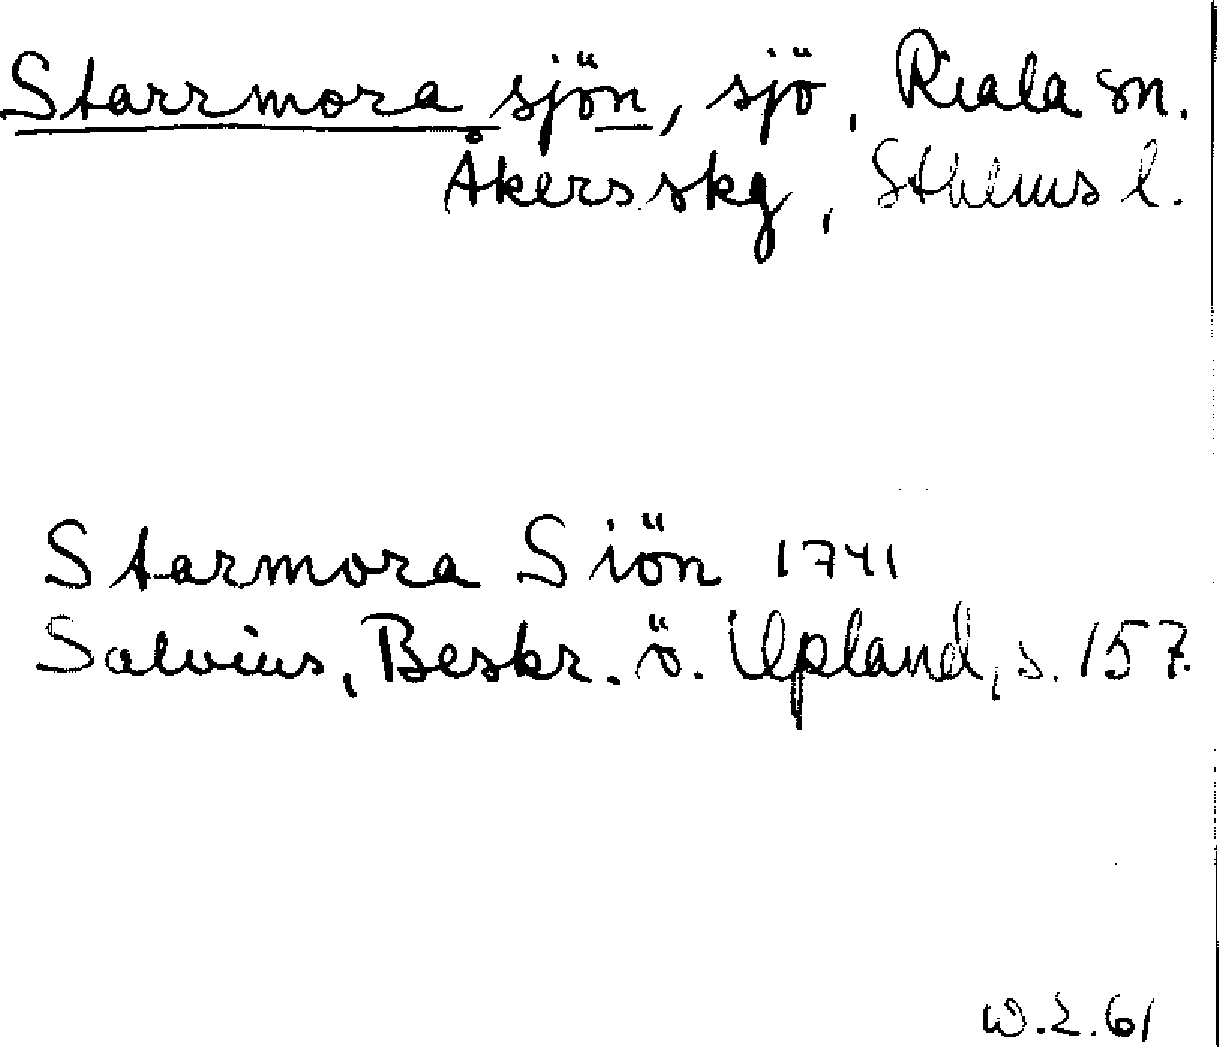 Starrmora sjön, sjö, Riala sn.
Åkers skg, Sthlms l.
Starmora Siön 1741
Salvius, Beskr. ö. Upland, s. 157.
W.2.61